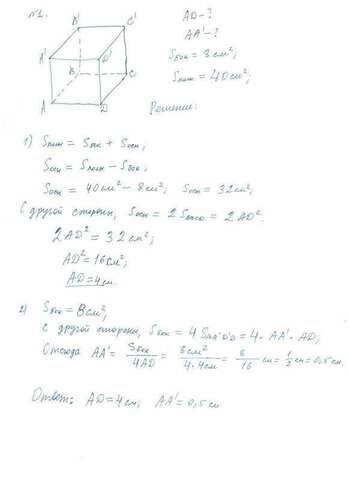 №1.
B' C'
A' D'
B C
A D
AD - ?
AA' - ?
Sбок = 8 см²;
Sполн = 40 см²;
Решение:
1) Sполн = Sбок + Sосн;
Sосн = Sполн - Sбок;
Sосн = 40 см² - 8 см²; Sосн = 32 см²;
С другой стороны, Sосн = 2 SABCD = 2 AD².
2 AD² = 32 см²;
AD² = 16 см²;
AD = 4 см.
2) Sбок = 8 см²;
С другой стороны, Sбок = 4 SAA'D'D = 4 · AA' · AD;
Отсюда AA' = Sбок / 4AD = 8 см² / 4·4 см = 8/16 см = 1/2 см = 0,5 см.
Ответ: AD = 4 см; AA' = 0,5 см